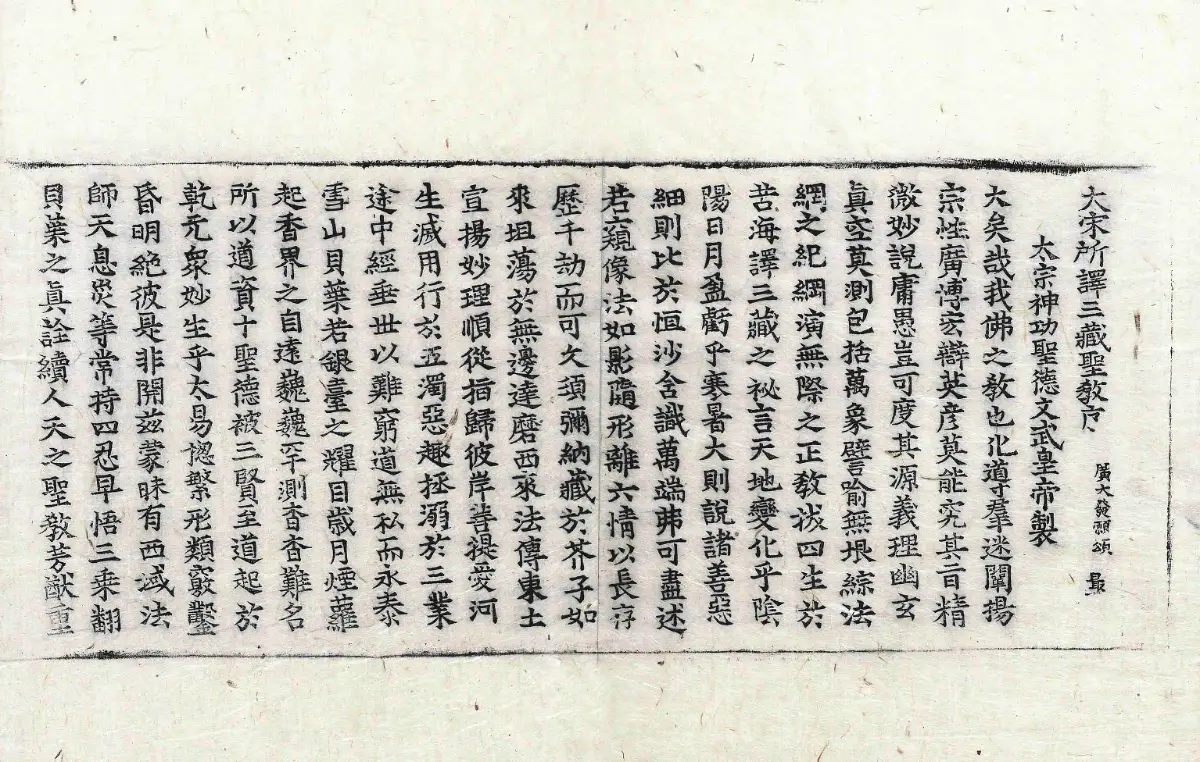 大宋所譯三藏聖教序 廣大發願頌
太宗神功聖德文武皇帝製
大矣哉我佛之教也化導羣迷闡揚
宗性廣博宏辯英彦莫能究其旨精
微妙說庸愚豈可度其源義理幽玄
眞空莫測包括萬象譬喻無垠綜法
網之紀綱演無際之正教拔四生於
苦海譯三藏之祕言天地變化乎陰
陽日月盈虧乎寒暑大則說諸善惡
細則比於恒沙含識萬端弗可盡述
若窺像法如影隨形離六情以長存
歷千劫而可久須彌納藏於芥子如
來坦蕩於無邊達磨西來法傳東土
宣揚妙理順從指歸彼岸菩提愛河
生滅用行於五濁惡趣拯溺於三業
途中經垂世以難窮道無私而永泰
雪山貝葉若銀臺之耀目歲月煙蘿
起香界之自遠巍巍罕測杳杳難名
所以道資十聖德被三賢至道起於
乾元衆妙生乎太易揔繁形類竅鑿
昏明絶彼是非開茲蒙昧有西域法
師天息災等常持四忍早悟三乘翻
貝葉之眞詮續人天之聖教芳猷重